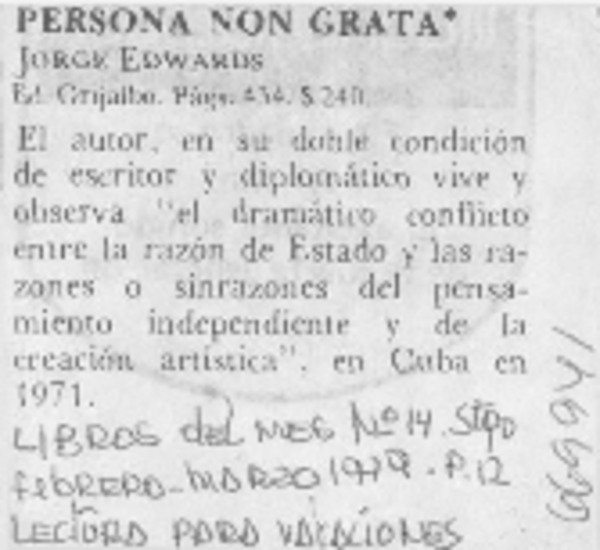 PERSONA NON GRATA*
JORGE EDWARDS
Ed. Grijalbo. Págs. 434. $ 240.
El autor, en su doble condición
de escritor y diplomático vive y
observa "el dramático conflicto
entre la razón de Estado y las ra-
zones o sinrazones del pensa-
miento independiente y de la
creación artística", en Cuba en
1971.
LIBROS del MES Nº 14. Stgo
febrero-MARZO 1979. P.12
LECTURA PARA VACACIONES